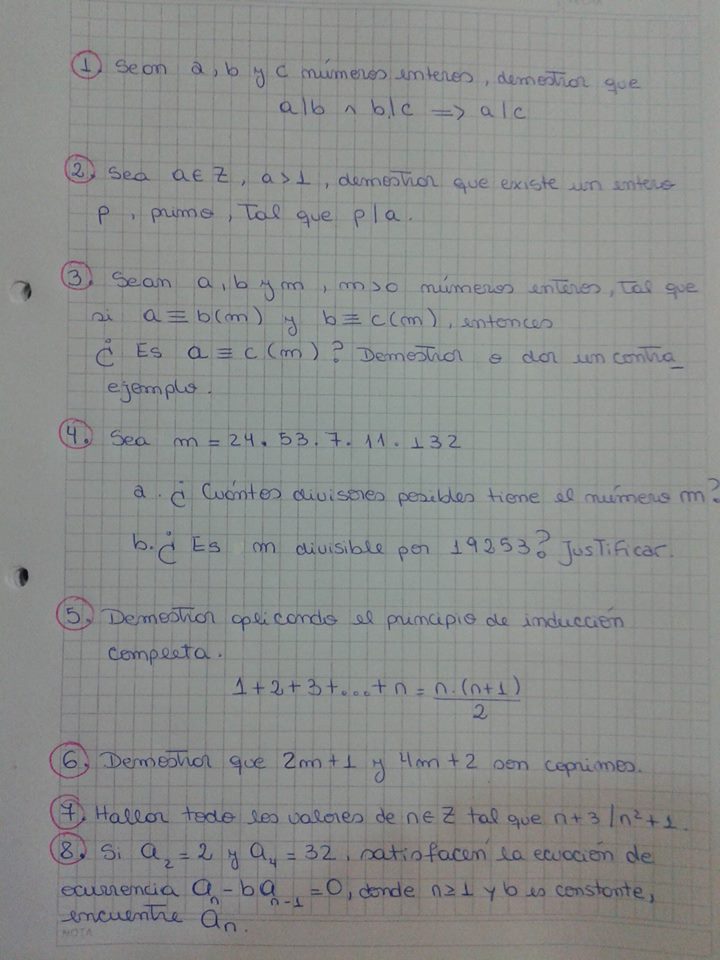 1. Sean a, b y c números enteros, demostrar que
a|b ∧ b|c => a|c
2. Sea a ∈ Z, a > 1, demostrar que existe un entero
p, primo, tal que p|a.
3. Sean a, b y m, m>0 números enteros, tal que
si a ≡ b(m) y b ≡ c(m), entonces
¿ Es a ≡ c(m)? Demostrar o dar un contra_
ejemplo.
4. Sea m = 24.53.7.11.132
a. ¿ Cuántos divisores posibles tiene el número m?
b. ¿ Es m divisible por 19253? Justificar.
5. Demostrar aplicando el principio de inducción
completa.
1+2+3+...+n = n.(n+1)
2
6. Demostrar que 2m+1 y 4m+2 son coprimos.
7. Hallar todo los valores de n ∈ Z tal que n+3/n²+1.
8. Si a₂=2 y a₄=32, satisfacen la ecuación de
ocurrencia aₙ-baₙ₋₁=0, donde n≥1 y b es constante,
encuentre aₙ.
NOTA